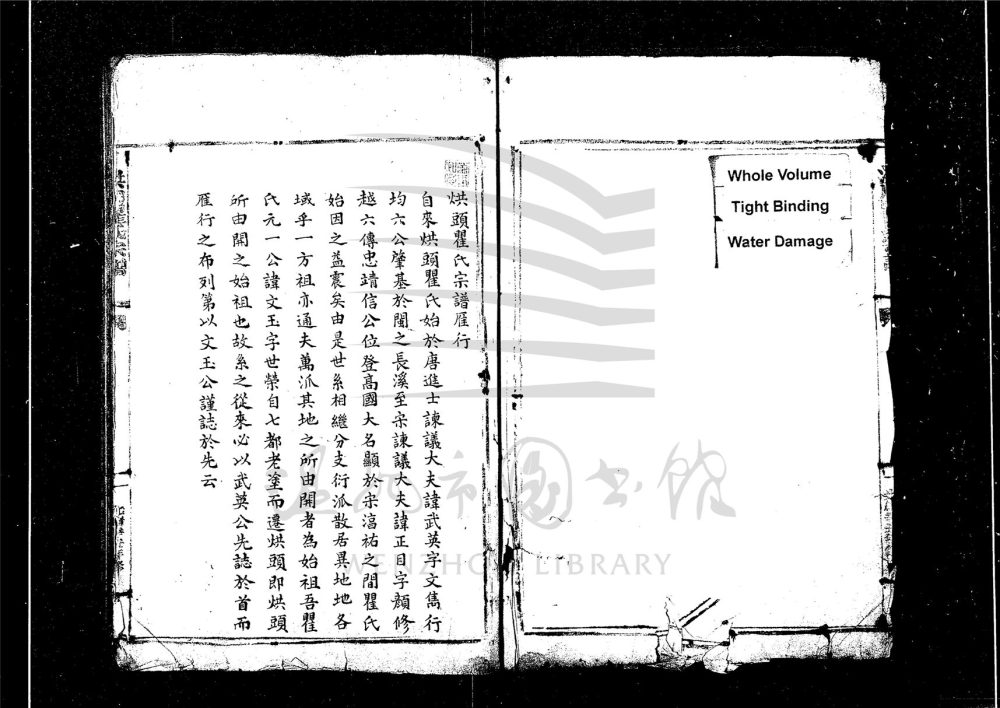 Whole Volume
Tight Binding
Water Damage
烘頭瞿氏宗譜雁行
自來烘頭瞿氏始於唐進士諫議大夫諱武英字文雋行
均六公肇基於閩之長溪至宋諫議大夫諱正目字顏修
越六傳忠靖信公位登高國大名顯於宋淳祐之間瞿氏
始因之益震矣由是世系相繼分支衍派散居異地地各
域乎一方祖亦通夫萬派其地之所由開者為始祖吾瞿
氏元一公諱文玉字世榮自七都老塗而遷烘頭即烘頭
所由開之始祖也故系之從來必以武英公先誌於首而
雁行之布列第以文玉公謹誌於先云
温州市圖書館
WENZHOU LIBRARY